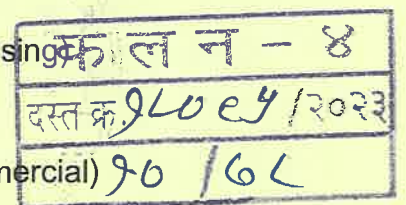 sing क ल न - ४
दस्त क्र. १८०९५ /२०२३
mercial) १० / ७८